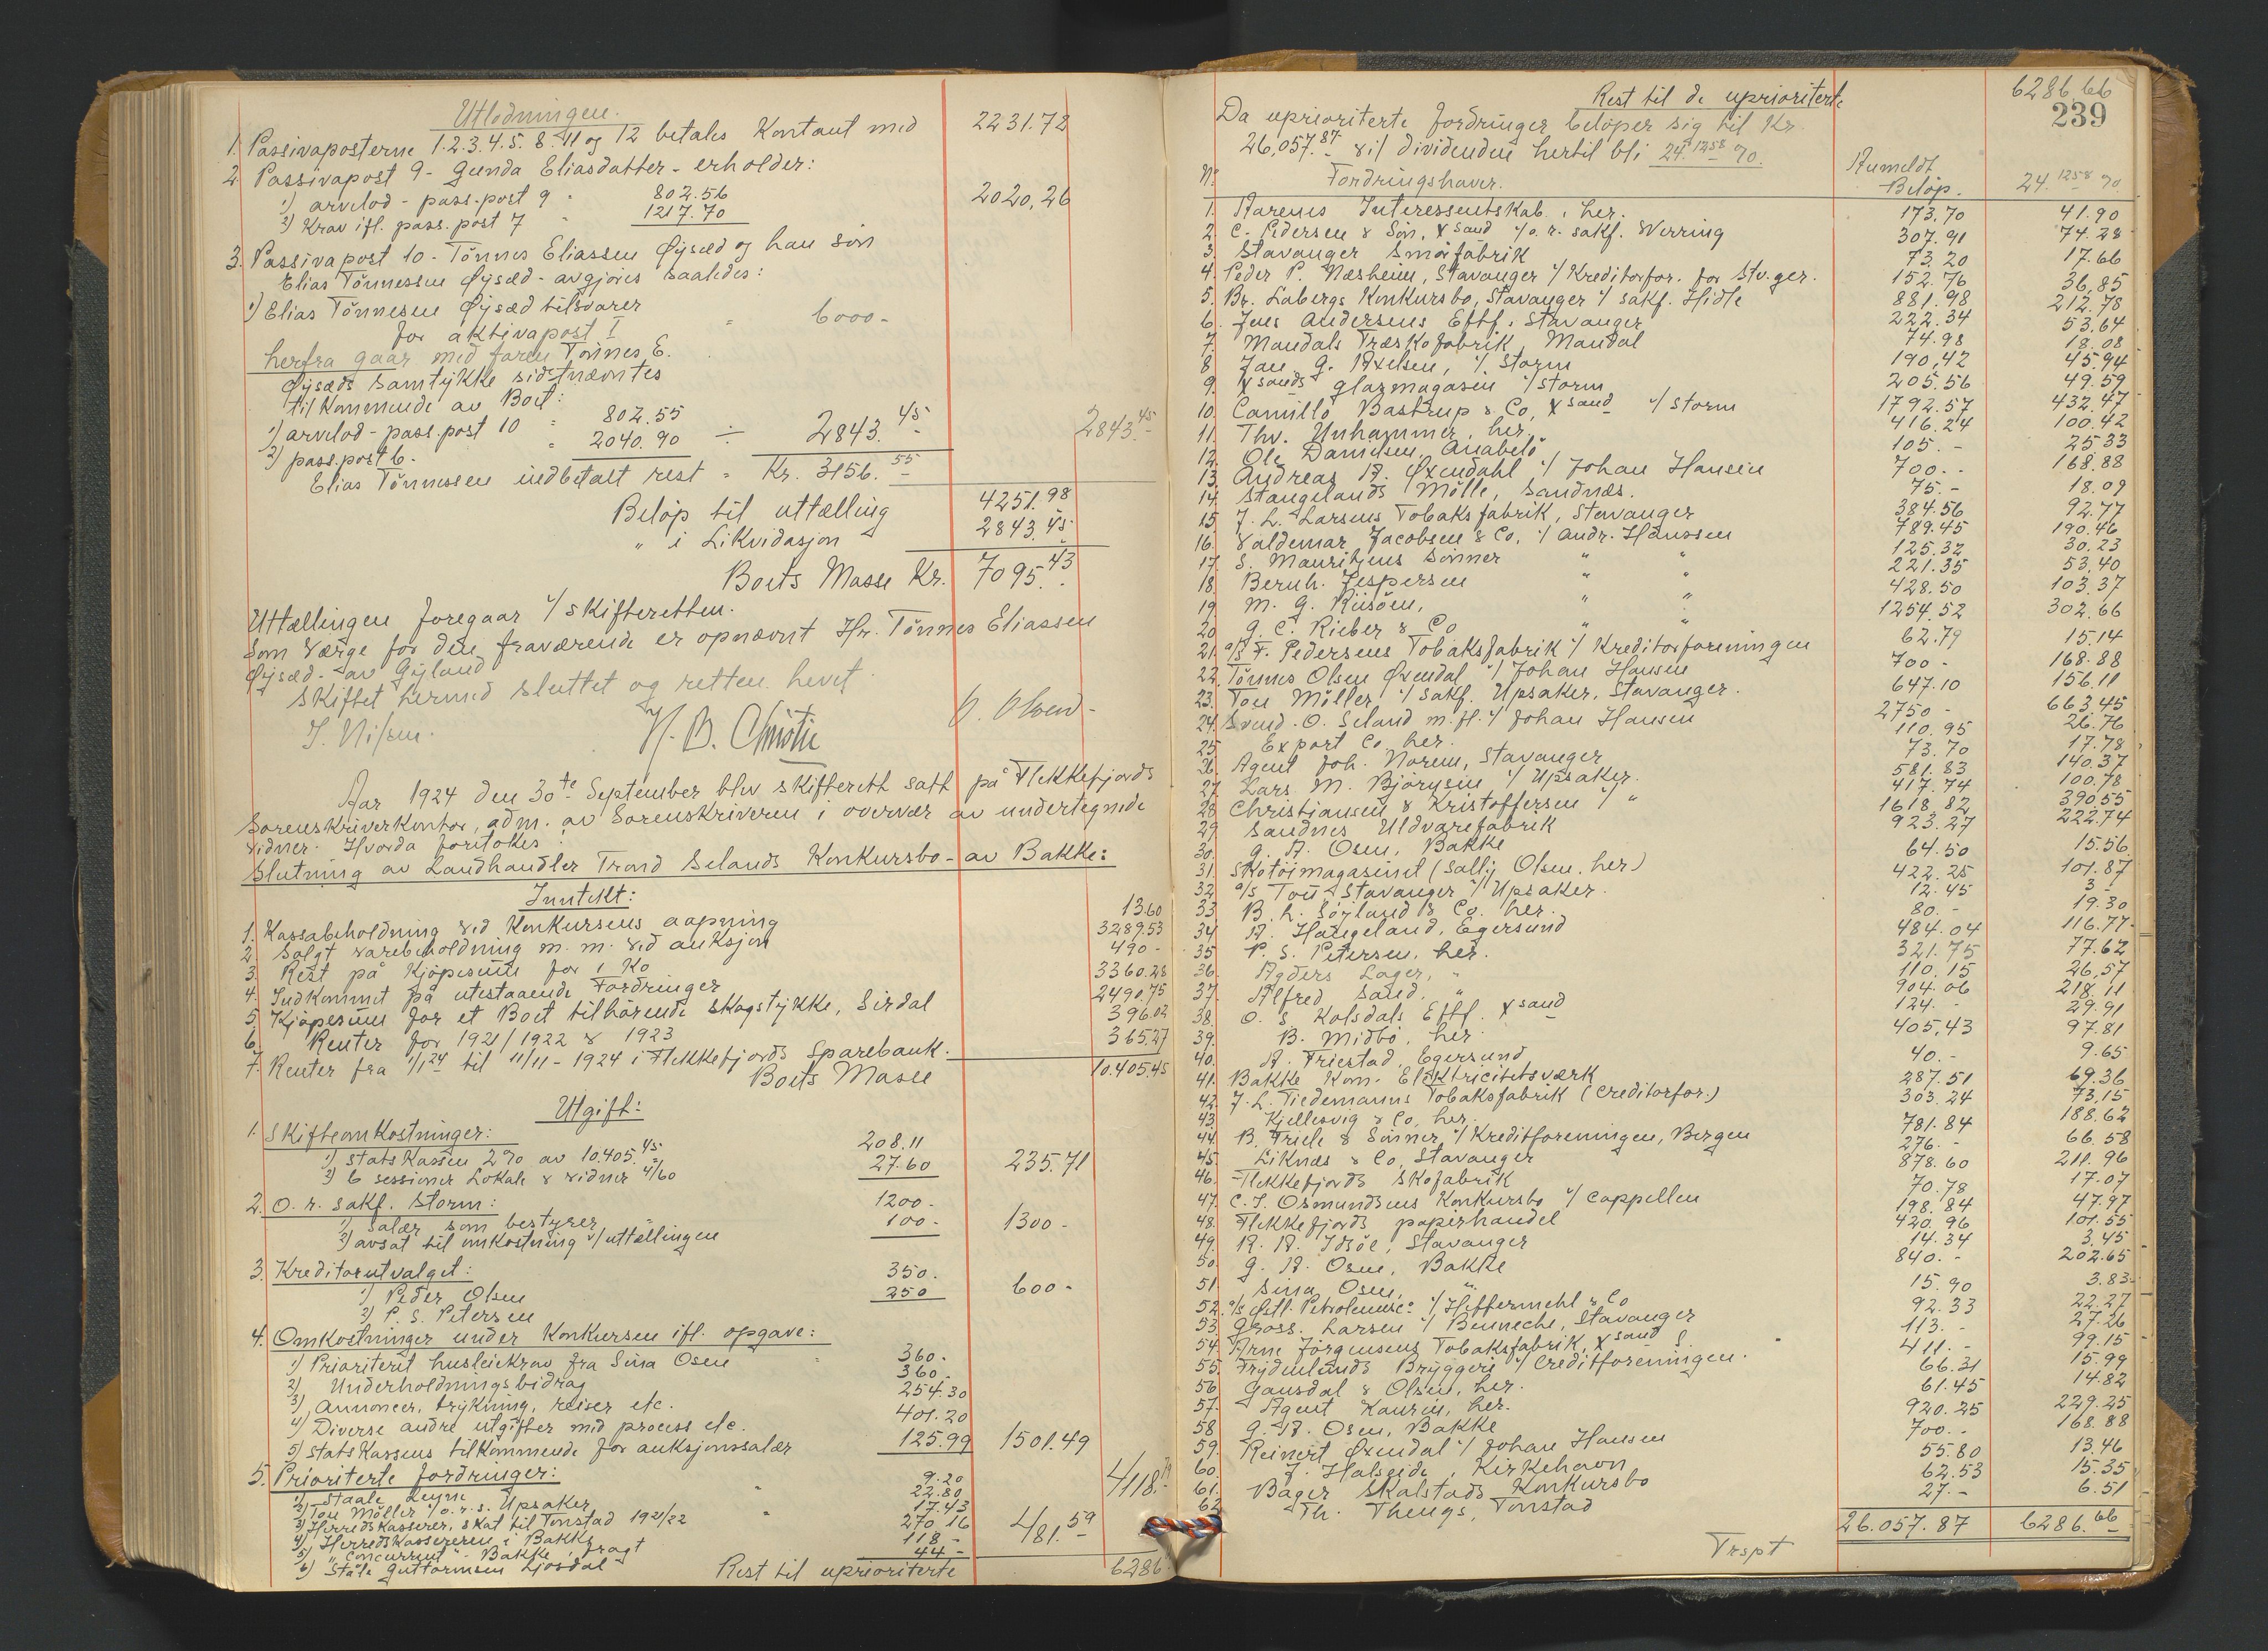 Utlodningen.
1. Passivaposterne 1.2.3.4.5. 8. 11 og 12 betales Kontant med 2231.72
2. Passivapost 9 - Gunda Eliasdatter - erholder:
1) arvelod - pass. post 9 " 802.56
2) Krav ifl. pass. post 7 " 1217.70 2020,26
3. Passivapost 10 - Tönnes Eliassen Øysæd og han sön
Elias Tönnessen Øysæd - avgjöres saaledes:
1) Elias Tönnesen Øysæd tilsvarer
for aktivapost I " 6000 -
herfra gaar med faren Tönnes E.
Øysæds samtykke sidstnævntes
tilkommende av Boet:
1) arvelod - pass. post 10 " 802.55
2) pass. post 6 - " 2040.90 ÷ 2843.45 2843.45
Elias Tönnessen indbetalt rest " Kr. 3156.55
Belöp til uttælling 4251.98
" i Likvidasjon 2843.45
Boets Masse Kr. 7095.43
Uttællingen foregaar v/ skifteretten.
Som Værge for den fraværende er opnævnt Hr. Tönnes Eliassen
Øysæd - av Gyland
Skiftet hermed sluttet og retten hevet.
J. Nilsen. H. B. Christie O. Olsen -
Aar 1924 den 30te September blev skifterett satt på Flekkefjords
Sorenskriverkontor, adm. av Sorenskriveren i overvær av undertegnede
vidner. Hvorda foretokes:
Slutning av Landhandler Trond Selands Konkursbo - av Bakke:
Inntekt:
1. Kassabeholdning ved Konkursens aapning 13.60
2. Solgt varebeholdning m. m. ved auksjon 3289.53
3. Rest på Kjöpesum for 1 Ko 490 -
4. Indkommet på utestaaende Fordringer 3360.28
5. Kjöpesum for et Boet tilhörende skogstykke, Sirdal 2490.75
6. Renter for 1921/1922 & 1923 396.02
7. Renter fra 1/1 24 til 11/11 - 1924 i Flekkefjords Sparebank. 365.27
Boets Masse 10.405.45
Utgift:
1. Skifteomkostninger:
1) Statskassen 2% av 10.405.45 208.11
2) 6 sessioner Lokale & vidner 4/60 27.60 235.71
2. O. r. sakf. Storm:
1) Salær som bestyrer " 1200 -
2) avsat til omkostning v/ uttællingen 100 - 1300 -
3. Kreditorutvalget:
1) Peder Olsen 350.
2) P. S. Petersen 250 600 -
4. Omkostninger under Konkursen ifl. opgave:
1) Prioriterit husleiekrav fra Sina Osen " 360.
2) Underholdningsbidrag 360.
3) Annoncer, trykning, reiser etc. 254.30
4) Diverse andre utgifter med process etc. 401.20
5) Statskassens tilkommende for auksjonssalær 125.99 1501.49
5. Prioriterte fordringer: 4118.79
1) Staale " 9.20
2) Tou Möller v/ o. r. s. Upsaker 22.80
3) Herredskasserer, skat til Tonstad 1921/22 " 17.43
4) Herredskassereren i Bakke 270.16 481.59
5) " Concurrent " - Bakke, fragt 118 -
6) Ståle Guttormsen Ljosdal 44 -
Rest til uprioriterte 6286.
Rest til de uprioriterte 6286.66
239
Da uprioriterte fordringer belöper sig til Kr.
26,057.87 vil dividenden hertil bli 24.1258 %.
No. Fordringshaver. Anmeldt Belöp. 24.1258 %
1. Aarenes Interessentskab, her. 173.70 41.90
2. C. Pedersen & Sön, Xsand v/ o. r. sakf. Werring 307.91 74.28
3. Stavanger Smörfabrik 73.20 17.66
4. Peder P. Næsheim, Stavanger v/ Kreditorfor. for Stv.ger. 152.76 36,85
5. Br. Labergs Konkursbo, Stavanger v/ sakf. Hidle 881.98 212.78
6. Jens Andersens Eftf. Stavanger 222.34 53.64
7. Mandals Træskofabrik, Mandal 74.98 18.08
8. Jan G. Axelsen, v/ Storm 190,42 45.94
9. Xsands glasmagasin v/ Storm 205.56 49.59
10. Camillo Bastrup & Co, Xsand v/ Storm 1792.57 432.47
11. Thv. Unhammer, her. 416.24 100.42
12. Ole Danielsen, Anabelö 105. - 25.33
13. Andreas A. Øxendahl v/ Johan Hansen 700. - 168.88
14. Stangelands Mölle, Sandnæs. 75. - 18.09
15. J. L. Larsens Tobaksfabrik, Stavanger 384.56 92.77
16. Valdemar Jacobsen & Co. v/ Andr. Hanssen 789.45 190.46
17. S. Mauritzens Sönner " " 125.32 30.23
18. Bernh. Jespersen " " 221.35 53,40
19. M. G. Riisöen, " " 428.50 103.37
20. G. C. Rieber & Co " " 1254.52 302.66
21. a/s F. Pedersens Tobaksfabrik v/ Kreditorforeningen 62.79 15.14
22. Tönnes Olsen Øxendal v/ Johan Hansen 700 - 168.88
23. Tou Möller v/ sakf. Upsaker, Stavanger. 647.10 156.11
24. Svend. O. Seland m. fl. v/ Johan Hansen 2750 - 663.45
25. Export Co, her. 110.95 26.76
26. Agent Joh. Norem, Stavanger 73.70 17.78
27. Lars M. Björnsen v/ Upsaker. 581.83 140.37
28. Christiansen & Kristoffersen v/ " 417.74 100.78
29. Sandnes Uldvarefabrik 1618.82 390.55
30. G. A. Osen, Bakke 923.27 222.74
31. Skotöimagasinet (Sally Olsen, her) 64.50 15.56
32. a/s Tou Stavanger v/ Upsaker. 422.25 101.87
33. B. L. Söyland & Co. her. 12.45 3 -
34. A. Haugeland, Egersund 80. - 19.30
35. P. S. Petersen, her. 484.04 116.77
36. Agders Lager, " 321.75 77.62
37. Alfred Sand, " 110.15 26,57
38. O. S. Kolsdals Eftf. Xsand 904.06 218.11
39. B. Midbö, her. 124. - 29.91
40. A. Friestad, Egersund 405,43 97.81
41. Bakke Kom. Elektricitetsværk 40. - 9.65
42. J. L. Tiedemanns Tobaksfabrik (Creditorfor.) 287.51 69.36
43. Kjellesvig & Co, her. 303.24 73,15
44. B. Friele & Sönner v/ Kreditforeningen, Bergen 781.84 188.62
45. Liknæs & Co, Stavanger 276. - 66.58
46. Flekkefjords Skofabrik 878.60 211.96
47. C. J. Osmundsens Konkursbo v/ Cappellen 70.78 17.07
48. Flekkefjords papirhandel 198.84 47.97
49. A. A. Idsöe, Stavanger 420.96 101.55
50. G. A. Osen, Bakke 14.34 3.45
51. Sina Osen, " 840. - 202.65
52. a/s Østl. Petroleumsc: v/ Heffermehl & Co 15.90 3.83
53. Gross. Larsen v/ Benneche, Stavanger 92.33 22.27
54. Arne Jörgensens Tobaksfabrik, Xsand 113. - 27.26
55. Frydenlunds Bryggeri v/ Creditforeningen. 411. - 99.15
56. Gausdal & Olsen, her. 66.31 15.99
57. Agent Kaurin, her. 61.45 14.82
58. G. A. Osen, Bakke 920.25 229.25
59. Reinert Øxendal v/ Johan Hansen 700. - 168.88
60. J. Halseide, Kirkehavn 55.80 13.46
61. Bager Skalstads Konkursbo 62.53 15.35
62. Th. Thengs, Tonstad 27. - 6.51
26.057.87 6286.66
Trspt